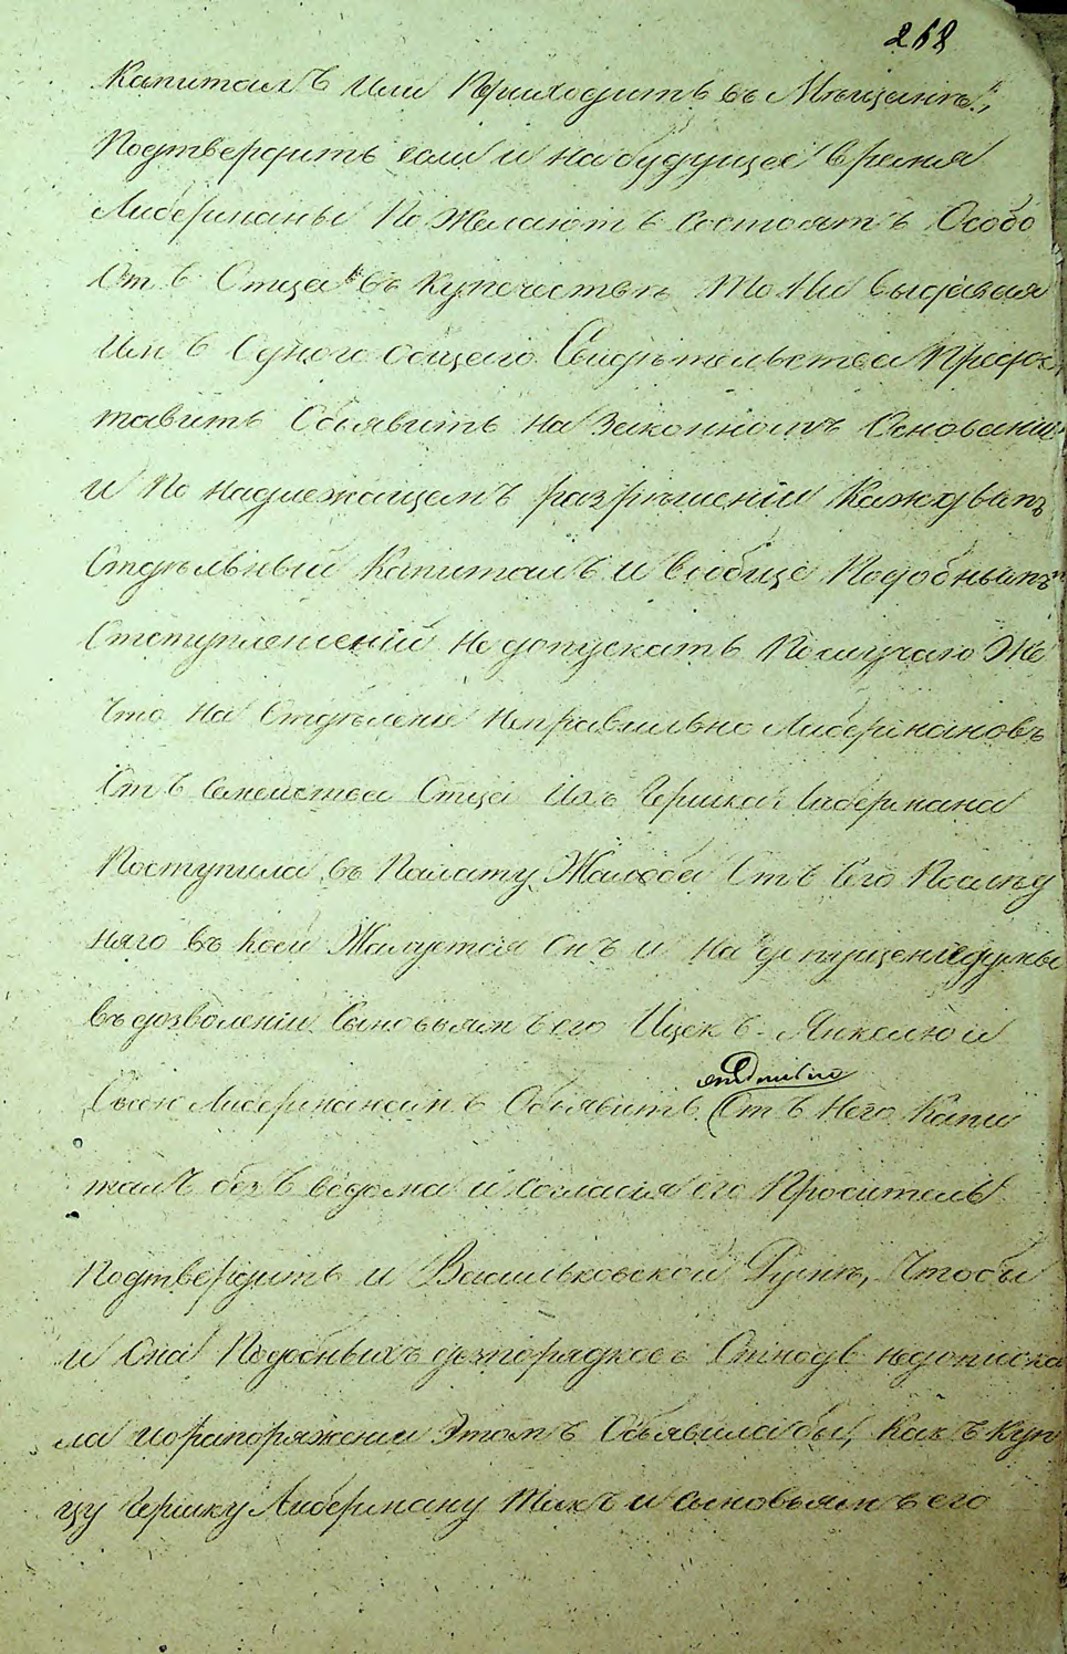 268
Капиталъ или Приходить въ Мѣщане,
Подтвердить если и на будущее время
Либерманы Пожелаютъ состоять Особо
Отъ Отца въ купечествѣ То Не выдавая
имъ Одного общего Свидѣтельства Предос
тавить Объявить на законномъ Основании
и По надлежащемъ разрѣшении Каждыемъ
Отдѣльный Капиталъ и вообще Подобныхъ
Отступлений не допускать По случаю Же
что на Отдѣление неправильно Либермановъ
Отъ Семейства Отца Ихъ Гершка Либермана
Поступила въ Палату Жалоба Отъ Сего Послѣд
няго въ коей Жалуется Онъ и на допущение думы
въ дозволении Сыновьямъ его Ицекъ Янкелю и
Либерманамъ Объявить Отъ Него Капи
отдѣльно
талъ безъ ведома и согласия его Просителя
Подтвердить и Васильковской Думѣ, Чтобы
и Она Подобныхъ безпорядковъ Отнюдь недопуска
ла и о распоряжении Этомъ Объявила бы, Какъ Куп
цу Гершку Либерману Такъ и сыновьямъ его